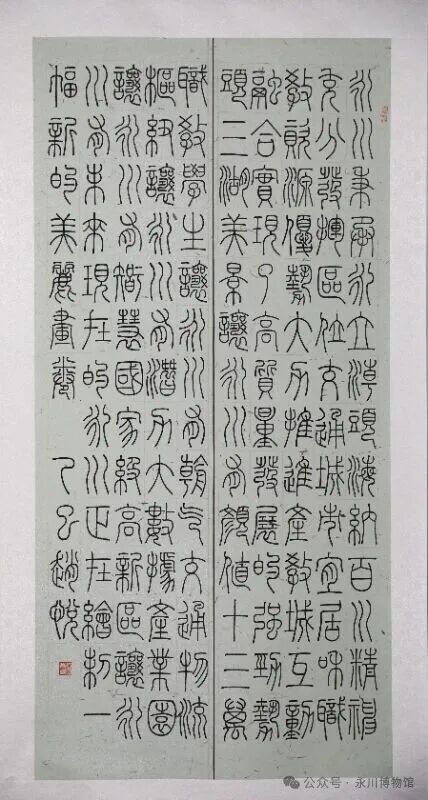 永川秉承永立潮頭海納百川精神
充分發揮區位交通城市宜居和職
教資源優勢大力推進產教城互動
融合實現了高質量發展的強勁勢
頭三湖美景讓永川有顏值十三萬
職教學生讓永川有朝氣交通物流
樞紐讓永川有潛力大數據產業園
讓永川有智慧國家級高新區讓永
川有未來現在的永川正在繪制一
幅新的美麗畫卷 乙巳趙悅
公众号·永川博物馆